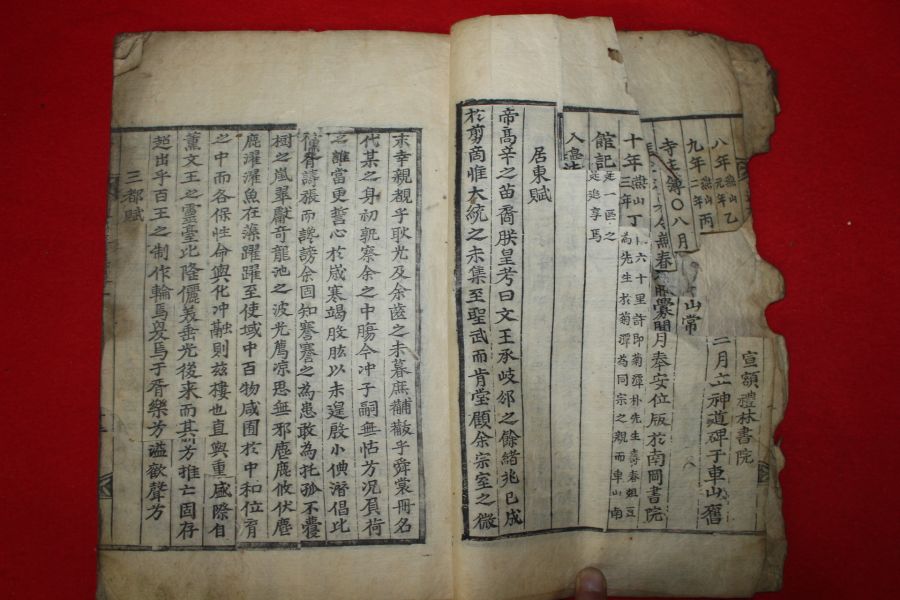 宣額禮林書院
二月立神道碑于車山舊
山常
月奉安位版於南岡書院
八年
九年
寺主簿○八月
十年
六十里許即菊潭朴先生壽春俎豆
為先生於菊潭為同宗之親而車山南
館記
一區之
追享焉
居東賦
帝高辛之苗裔朕皇考曰文王承岐邠之餘緖兆已成
於剪商惟大統之未集至聖武而肯堂顧余宗室之微
末幸親覩乎耿光及余齒之未暮庶黼黻乎舜裳冊名
代某之身初孰察余之中膓今冲子嗣無怙方况負荷
之誰當更誓心於咸寒竭股肱以未遑殷小倎潛倡比
胥譸張而讒謗余固知謇謇之為患敢為托孤不
樹之嵐翠獻奇龍池之波光薦凉思無邪麀鹿攸伏麀
鹿濯濯魚在藻躍躍至使域中百物咸囿於中和位育
之中而各保性命與化冲融則玆樓也直與重感際自
薰文王之靈臺比隆儷羙垂光後來而其芳推亡固存
超出乎百王之制作輪焉奐焉于胥樂芳謳歌聲方
三都賦